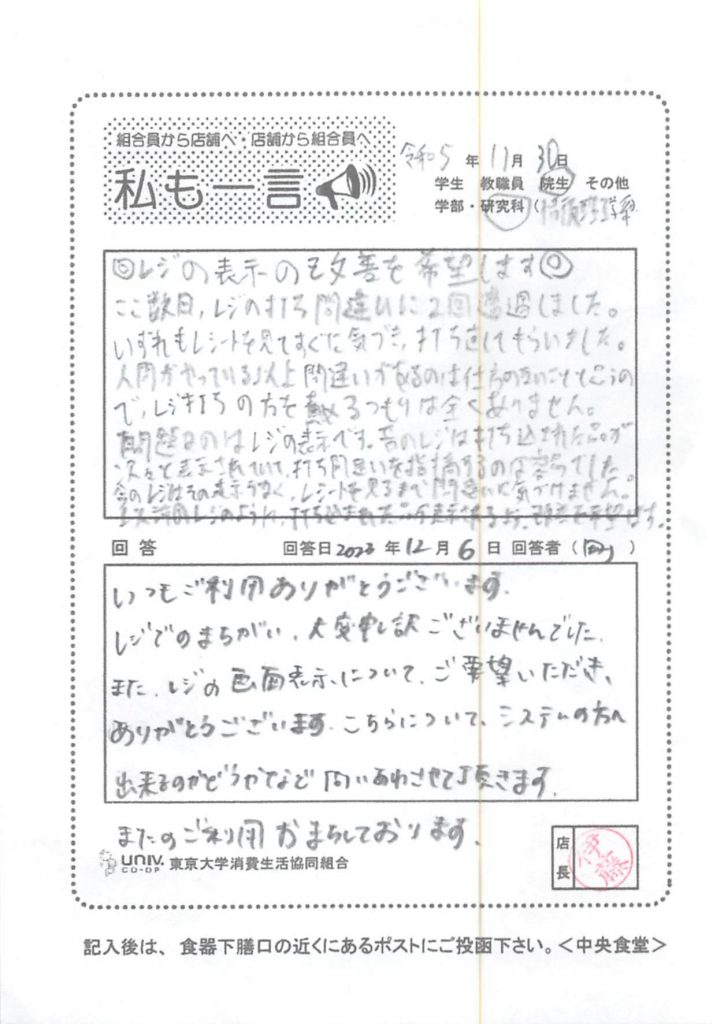 組合員から店舗へ・店舗から組合員へ
私も一言
令和5年11月30日
学生 教職員 院生 その他
学部・研究科(情報理工学系
◎レジの表示の改善を希望します◎
ここ数日、レジの打ち間違いに2回遭遇しました。
いずれもレシートを見てすぐに気づき、打ち直してもらいました。
人間がやっている以上間違いがあるのは仕方のないことと思うの
で、レジ打ちの方を責めるつもりは全くありません。
問題なのはレジの表示です。昔のレジは打ち込まれた品が
次々と表示されていて、打ち間違いを指摘するのは容易でした。
今のレジはその表示がなく、レシートを見るまで間違いに気づけません。
レジのように、打ち込まれた品が表示されるよう、改善を希望します。
回答 回答日2023年12月6日 回答者( )
いつもご利用ありがとうございます。
レジでのまちがい、大変申し訳ございませんでした。
また、レジの画面表示について、ご要望いただき、
ありがとうございます。こちらについて、システムの方へ
出来るのかどうかなど問いあわさせて頂きます。
またのご利用おまちしております。
UNIV. CO-OP 東京大学消費生活協同組合
店長 伊藤
記入後は、食器下膳口の近くにあるポストにご投函下さい。<中央食堂>